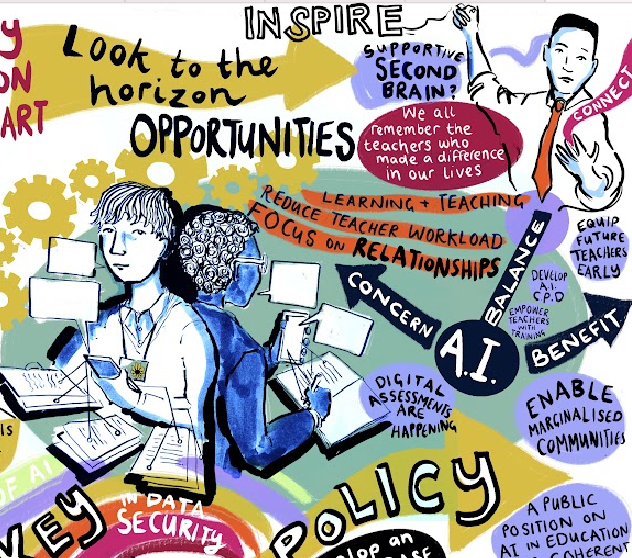 INSPIRE
Y
ON
ART
Look to the
horizon
OPPORTUNITIES
SUPPORTIVE
SECOND
BRAIN?
We all
remember the
teachers who
made a difference
in our lives
CONNECT
LEARNING + TEACHING
REDUCE TEACHER WORKLOAD
FOCUS ON RELATIONSHIPS
EQUIP
FUTURE
TEACHERS
EARLY
BALANCE
DEVELOP
A.I.
C.P.D
EMPOWER
TEACHERS
WITH
TRAINING
CONCERN
A.I.
BENEFIT
DIGITAL
ASSESSMENTS
ARE
HAPPENING
ENABLE
MARGINALISED
COMMUNITIES
IS
OF AI
KEY
IN DATA
SECURITY
POLICY
A PUBLIC
POSITION ON
A.I IN EDUCATION